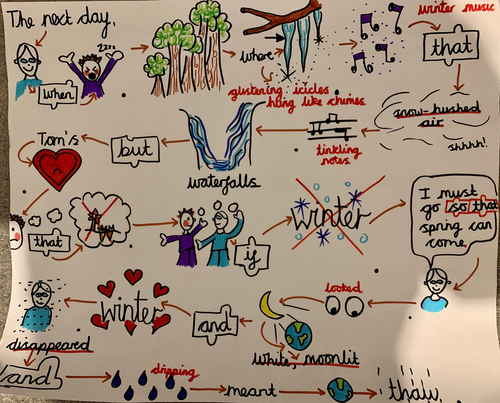 The next day,
when
zzzz
where
glistening icicles
hang like chimes
winter music
that
snow-hushed
air
shhhh!
tinkling
notes
waterfalls
but
Tom's
that
if
winter
I must
go so that
spring can
come.
looked
white, moonlit
and
winter
disappeared
and
dripping
meant
thaw.